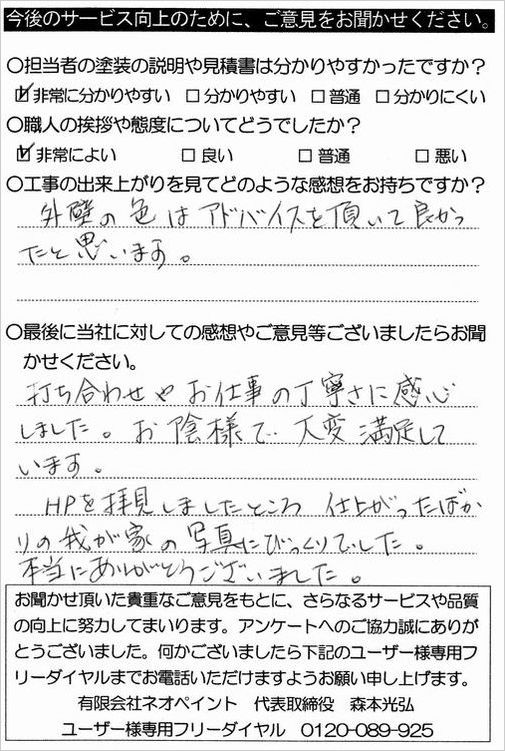 今後のサービス向上のために、ご意見をお聞かせください。
○担当者の塗装の説明や見積書は分かりやすかったですか？
☑非常に分かりやすい □分かりやすい □普通 □分かりにくい
○職人の挨拶や態度についてどうでしたか？
☑非常によい □良い □普通 □悪い
○工事の出来上がりを見てどのような感想をお持ちですか？
外壁の色はアドバイスを頂いて良かっ
たと思います。
○最後に当社に対しての感想やご意見等ございましたらお聞
かせください。
打ち合わせやお仕事の丁寧さに感心
しました。お陰様で大変満足して
います。
HPを拝見しましたところ 仕上がったばか
りの我が家の写真にびっくりでした。
本当にありがとうございました。
お聞かせ頂いた貴重なご意見をもとに、さらなるサービスや品質
の向上に努力してまいります。アンケートへのご協力誠にありが
とうございました。何かございましたら下記のユーザー様専用フ
リーダイヤルまでお電話いただけますようお願い申し上げます。
有限会社ネオペイント 代表取締役 森本光弘
ユーザー様専用フリーダイヤル 0120-089-925